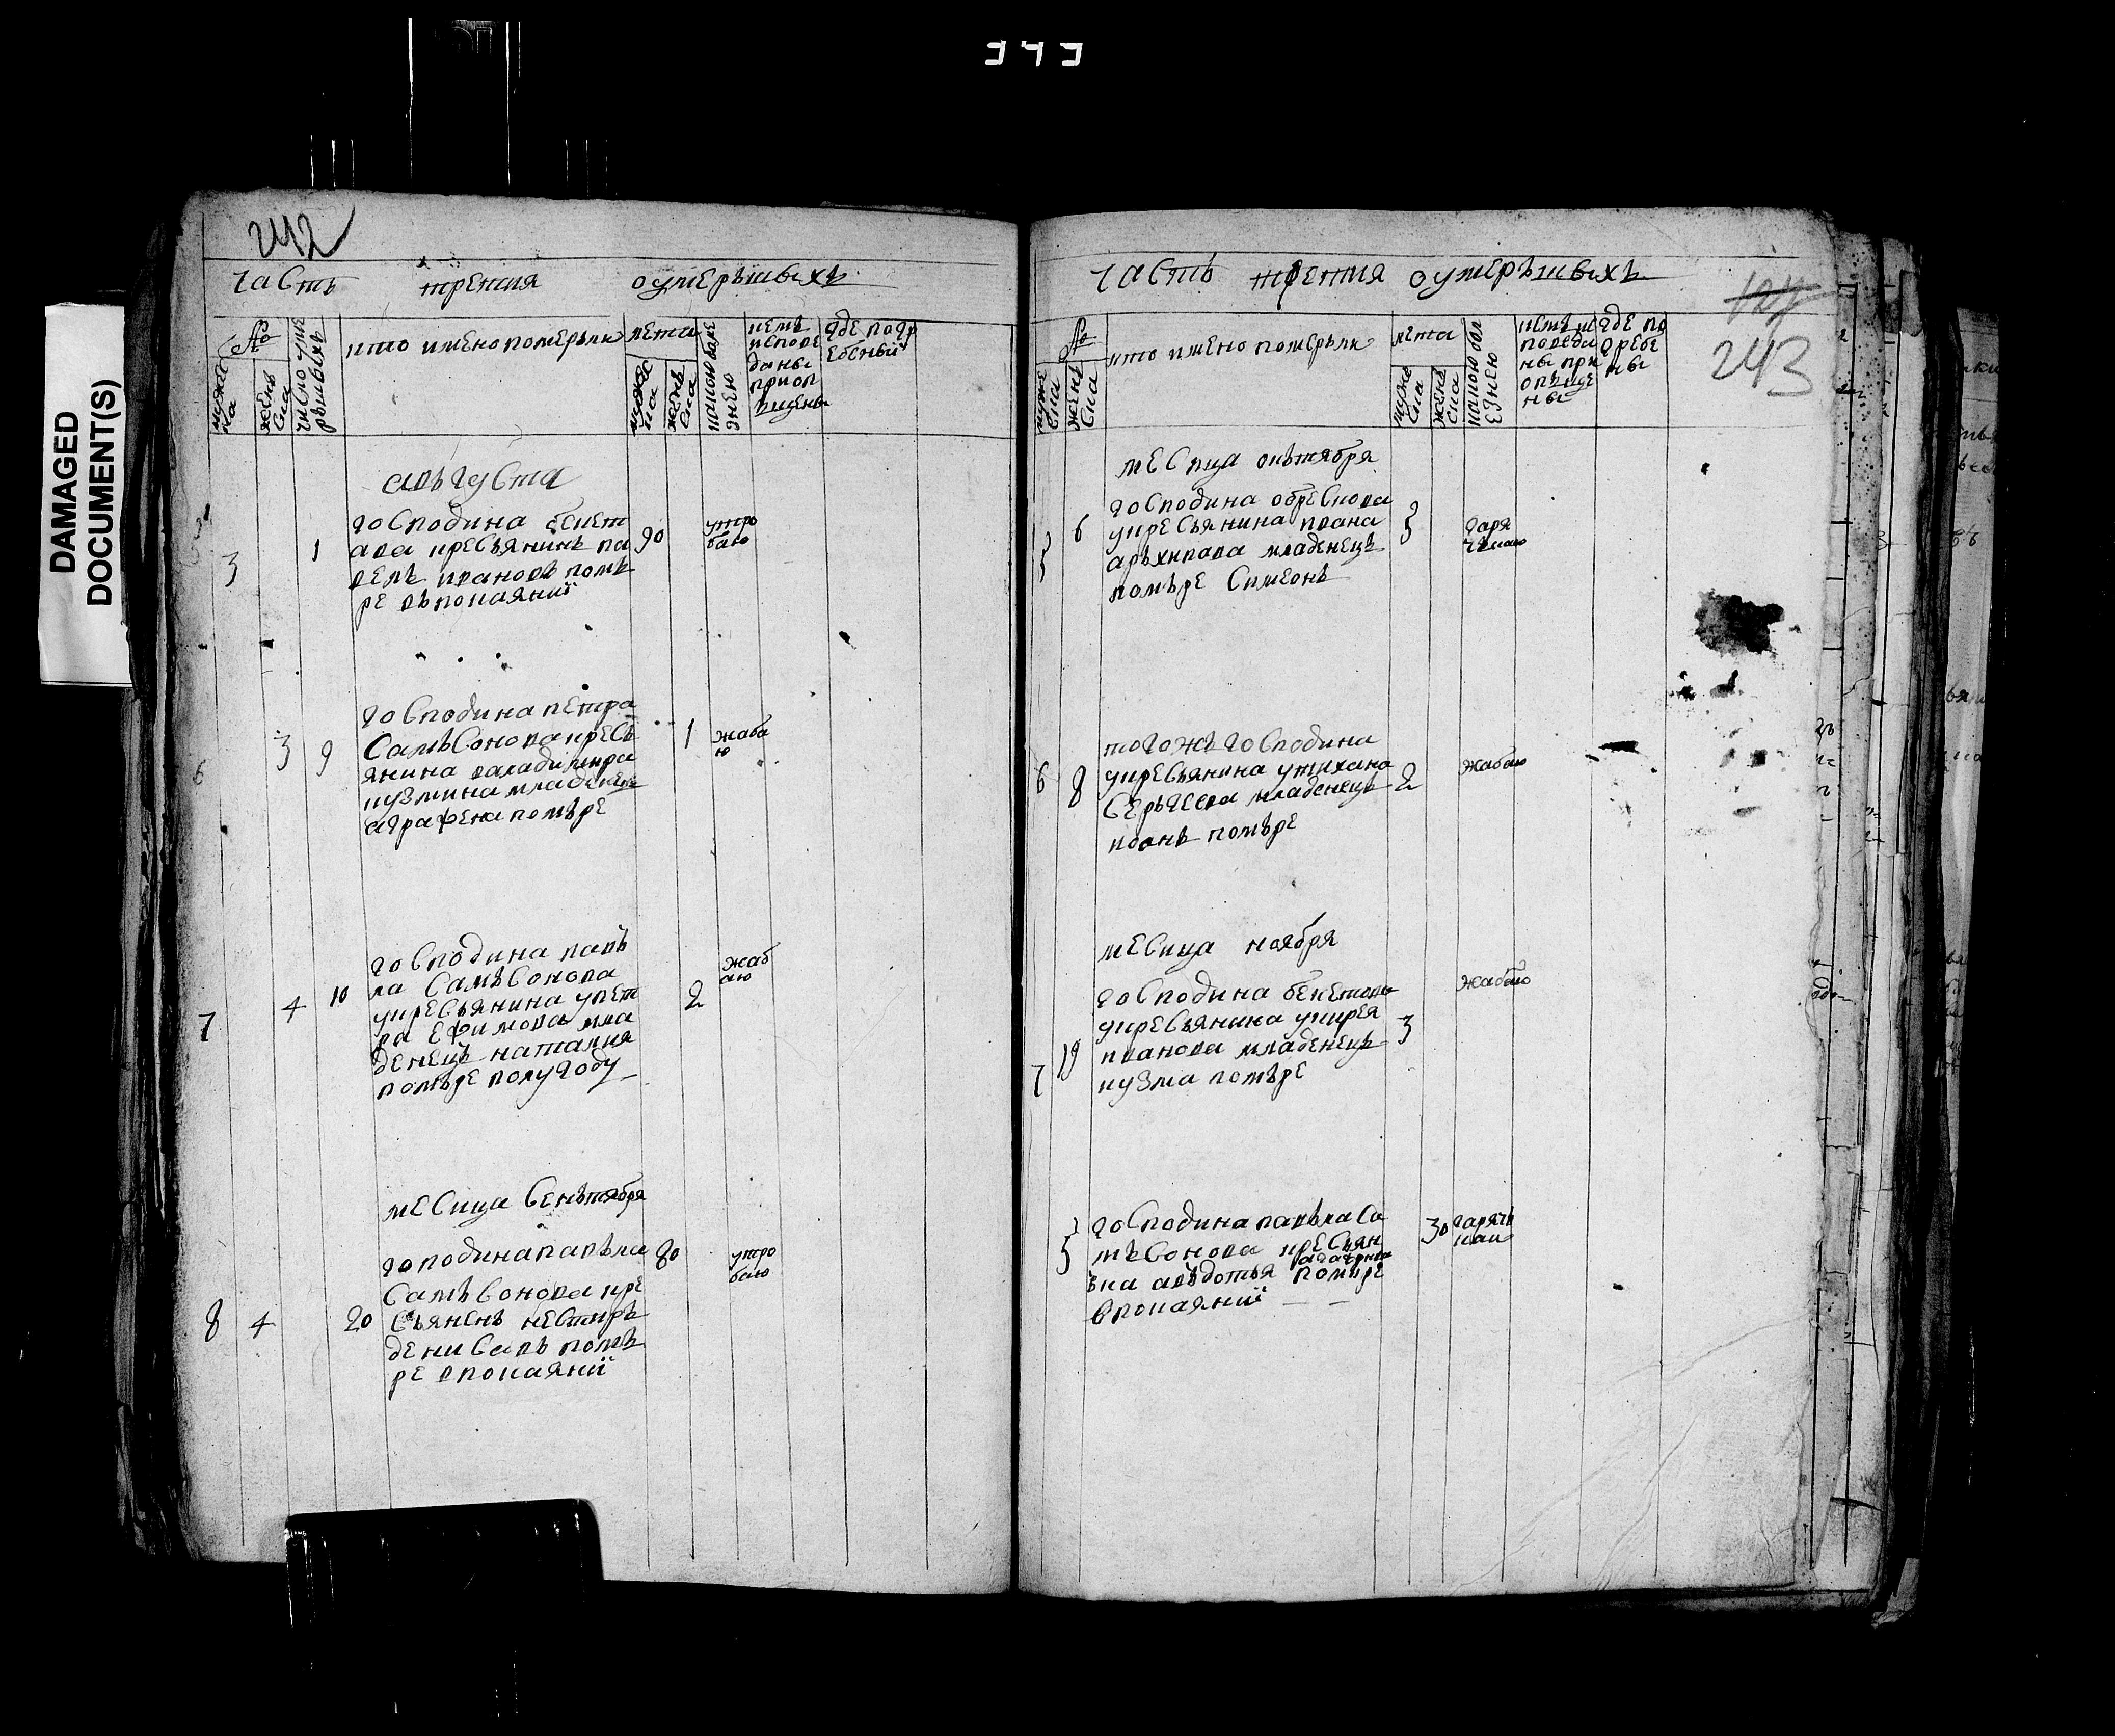 343
DAMAGED
DOCUMENT(S)
242
часть третия оумерьшвихъ
№
мужеска
женьска
число умерьшвихъ
кто имено померьли
лета
мужеска
женьска
какою болезнею
кемъ исповеданы приопьщены
где погребеный
авъгуста
3
1
господина бекет
ава кресьянинъ па
велъ ивановъ помъ
ре въпокаянии
90
утро
баю
6
3
9
господина петра
Самъсонова кресь
янина валадимира
кузмина младенец
аграфена помъре
1
жаба
ю
7
4
10
господина павъ
ла Самъсонова
укресьянина упет
ра ефимова мла
денецъ наталия
помъре полугоду
2
жаб
аю
месица сеньтября
8
4
20
гоподина павъла
Самъсонова кре
сьянень нестиръ
денисавъ помъ
ре впокаянии
80
утро
баю
часть третия оумерьшвихъ
127
243
№
муже
ска
жень
ска
кто имено померьли
лета
муже
ска
жень
ска
какою бол
езнею
кемъ ис
поведа
ны при
опьще
ны
где по
гребе
ны
месица окътября
5
6
господина обрескова
укресьянина ивана
аръхипава младенецъ
помъре Симеонъ
3
гаря
чькаю
6
8
тогожъ господина
укресьянина утихана
серьгеева младенецъ
иванъ помъре
2
жабаю
месица ноября
7
19
господина бекетова
укресьянина укирея
иванова младенецъ
кузма помъре
3
жабаю
5
господина павъла Са
мъсонова кресьян
ька авъдотья помъре
впокаянии
30
гарячь
каи